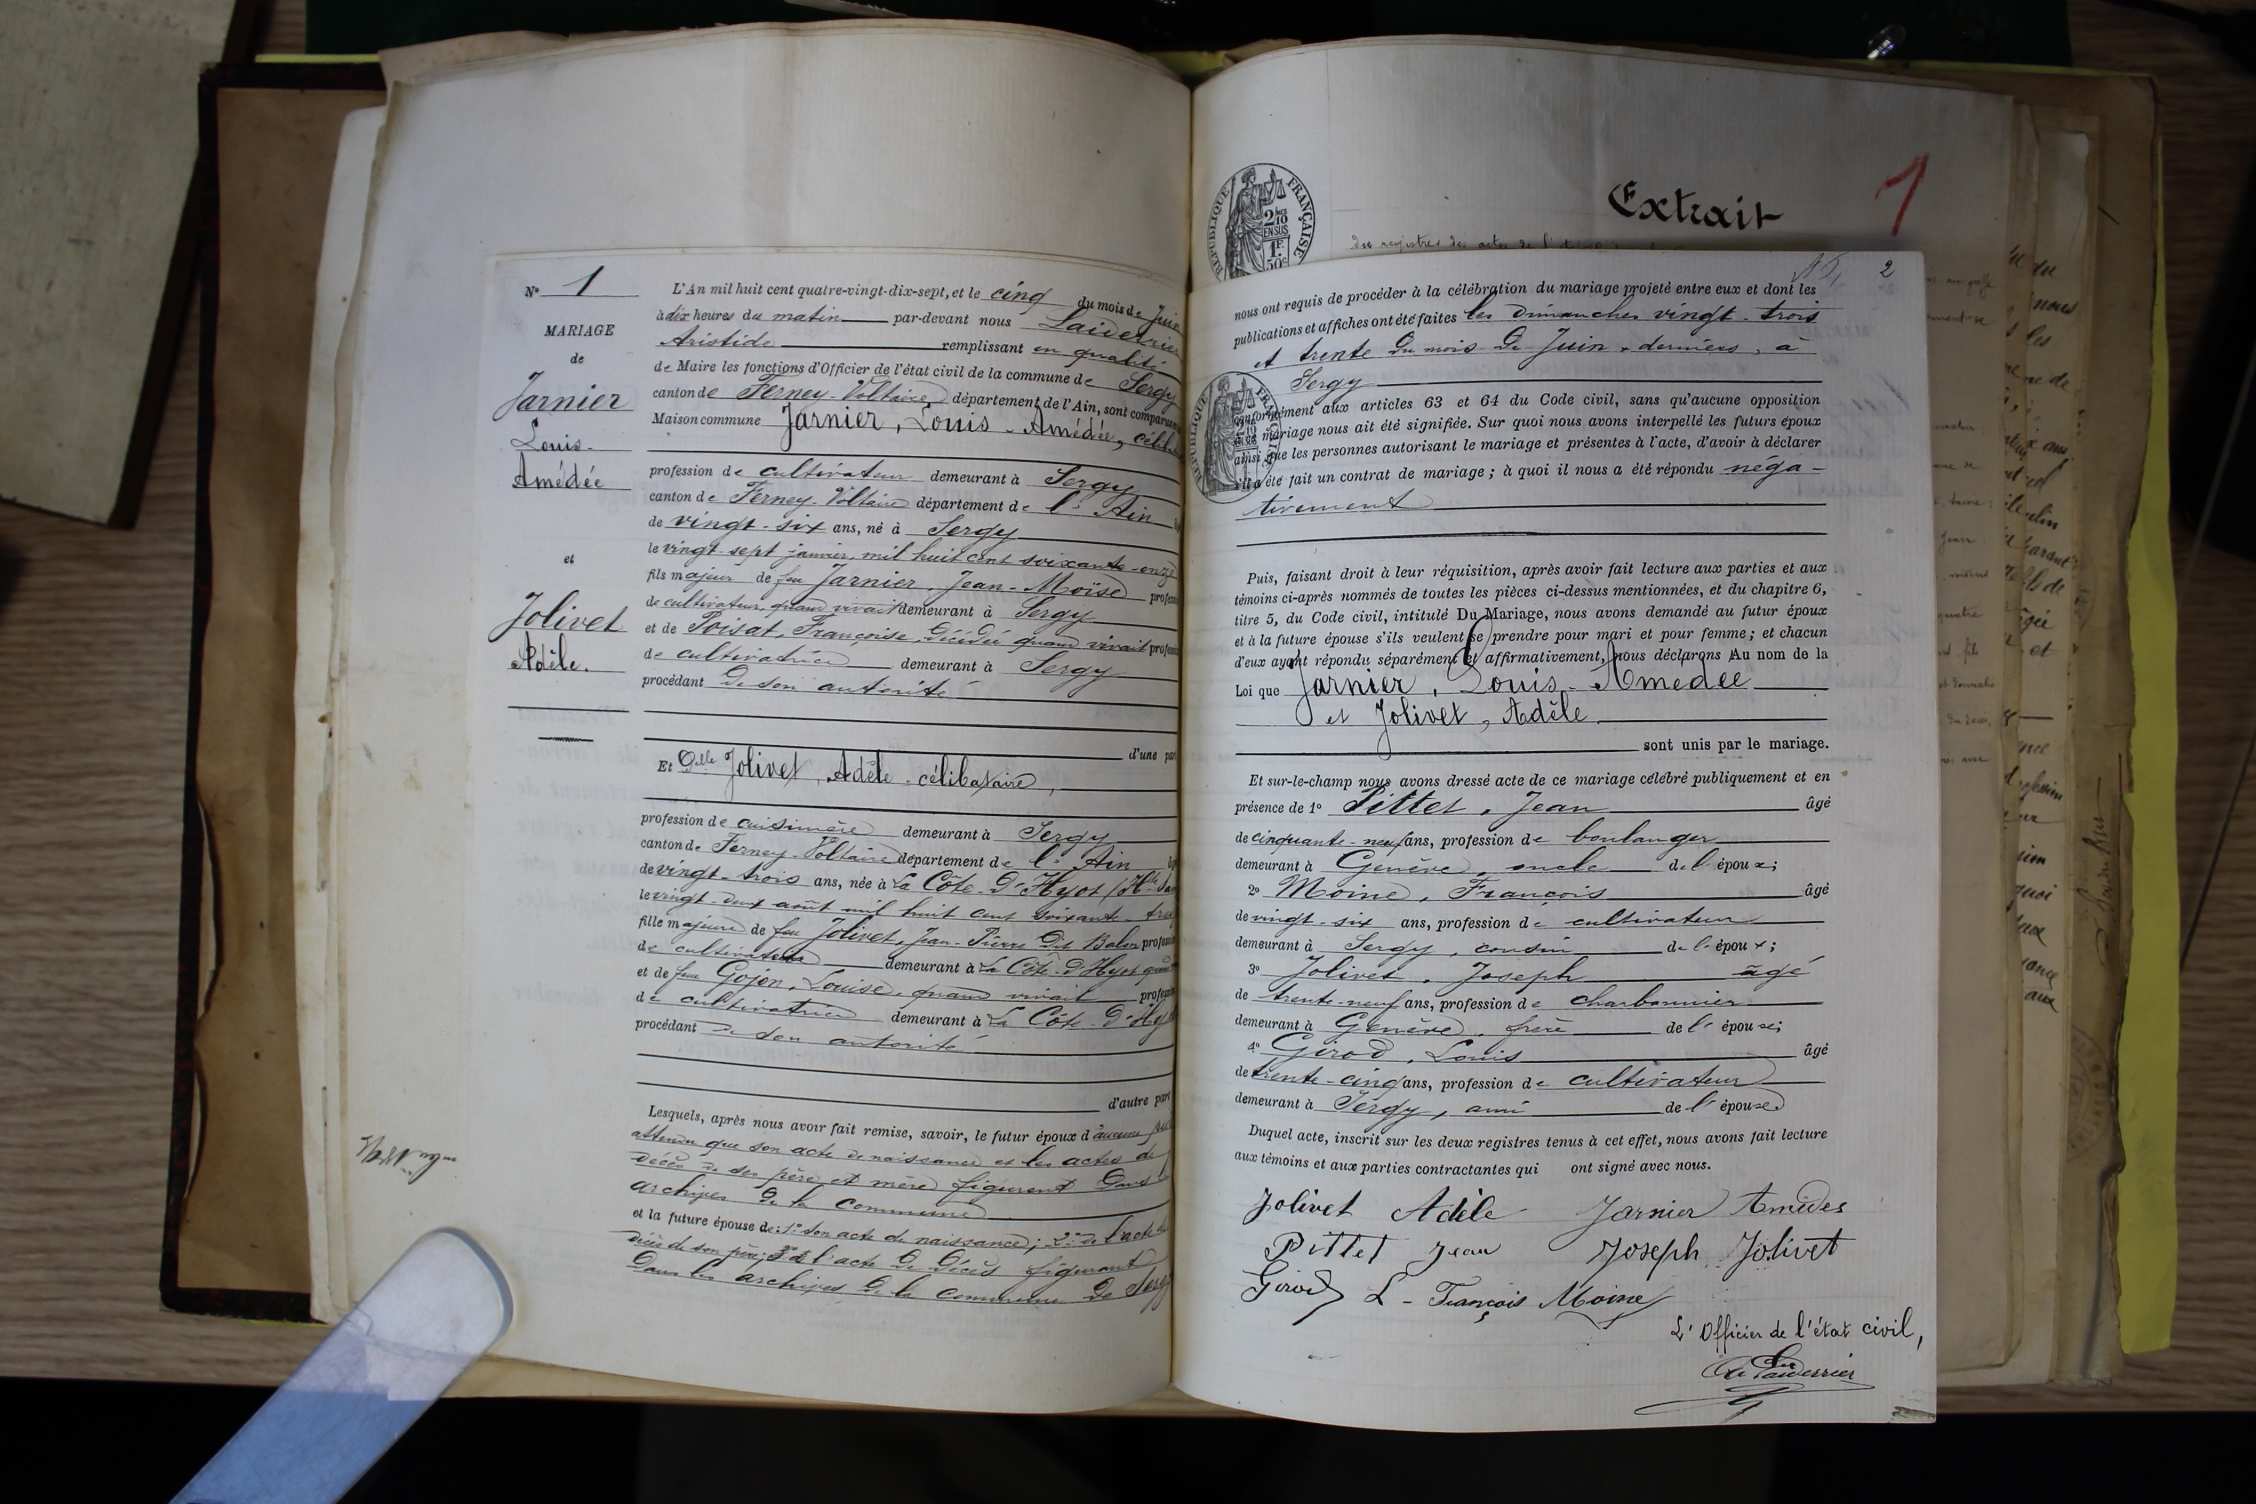 N° 1
MARIAGE
de
Jarnier
Louis-
Amédée
et
Jolivet
Adèle.
L'An mil huit cent quatre-vingt-dix-sept, et le cinq du mois de
à dix heures du matin par-devant nous Laiderrier
Aristide remplissant en qualité
de Maire les fonctions d'Officier de l'état civil de la commune de Sergy
canton de Ferney-Voltaire département de l'Ain, sont comparus
Maison commune Jarnier, Louis-Amédée, célib
profession de cultivateur demeurant à Sergy
canton de Ferney-Voltaire département de l'Ain
de vingt-six ans, né à Sergy
le vingt-sept janvier, mil huit cent soixante-onze
fils majeur de feu Jarnier, Jean-Moïse profess
de cultivateur, quand vivait demeurant à Sergy
et de Poisat, Françoise, décédée quand vivait profess
de cultivatrice demeurant à Sergy
procédant de son autorité
d'une par
Et Delle Jolivet, Adèle célibataire,
profession de cuisinière demeurant à Sergy
canton de Ferney-Voltaire département de l'Ain
de vingt-trois ans, née à La Côte-d'Hyot (Hte Sav
le vingt-deux août mil huit cent soixante-trei
fille majeure de feu Jolivet, Jean-Pierre dit profess
de cultivateur demeurant à La Côte-d'Hyot quand
et de feue Gojon, Louise, quand vivait profess
de cultivatrice demeurant à La Côte-d'Hyot
procédant de son autorité
d'autre part
Lesquels, après nous avoir fait remise, savoir, le futur époux d'aucune
attendu que son acte de naissance et les actes de
décès de ses père et mère figurent dans
archives de la commune
et la future épouse de: 1° son acte de naissance; 2° de l'acte de
décès de son père; 3° de l'acte de décès figurant
dans les archives de la commune de Sergy
Extrait
1
des registres des actes de l'
RÉPUBLIQUE FRANÇAISE
2/10 EN SUS
1F.50c
2
nous ont requis de procéder à la célébration du mariage projeté entre eux et dont les
publications et affiches ont été faites les dimanches vingt-trois
et trente du mois de Juin derniers, à
Sergy
conformément aux articles 63 et 64 du Code civil, sans qu'aucune opposition
mariage nous ait été signifiée. Sur quoi nous avons interpellé les futurs époux
ainsi que les personnes autorisant le mariage et présentes à l'acte, d'avoir à déclarer
s'il a été fait un contrat de mariage; à quoi il nous a été répondu néga-
tivement
Puis, faisant droit à leur réquisition, après avoir fait lecture aux parties et aux
témoins ci-après nommés de toutes les pièces ci-dessus mentionnées, et du chapitre 6,
titre 5, du Code civil, intitulé Du Mariage, nous avons demandé au futur époux
et à la future épouse s'ils veulent se prendre pour mari et pour femme; et chacun
d'eux ayant répondu séparément et affirmativement, nous déclarons Au nom de la
Loi que Jarnier, Louis-Amédée
et Jolivet, Adèle
sont unis par le mariage.
Et sur-le-champ nous avons dressé acte de ce mariage célébré publiquement et en
présence de 1° Pittet, Jean âgé
de cinquante-neuf ans, profession de boulanger
demeurant à Genève, oncle de l'époux;
2° Moine, François âgé
de vingt-six ans, profession de cultivateur
demeurant à Sergy, cousin de l'époux;
3° Jolivet, Joseph âgé
de trente-neuf ans, profession de charbonnier
demeurant à Genève, frère de l'épouse;
4° Girod, Louis âgé
de trente-cinq ans, profession de cultivateur
demeurant à Sergy, ami de l'épouse
Duquel acte, inscrit sur les deux registres tenus à cet effet, nous avons fait lecture
aux témoins et aux parties contractantes qui ont signé avec nous.
Jolivet Adèle Jarnier Amédée
Pittet Jean Joseph Jolivet
Girod L- François Moine
L'Officier de l'état civil,
Laiderrier